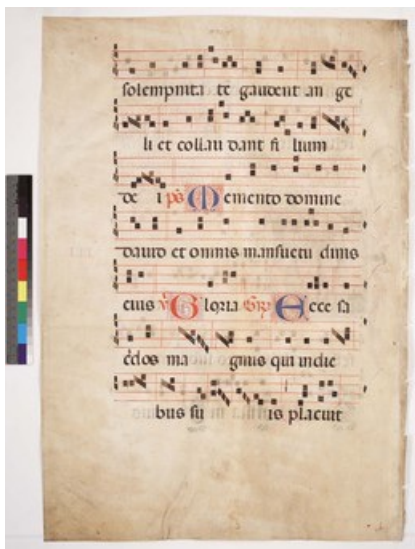 solempnita te gaudent an ge
li et collau dant fi lium
de i ps Memento domine
dauid et omnis mansuetu dinis
eius V Gloria Gr Ecce sa
cerdos ma gnus qui in die
bus su is placuit